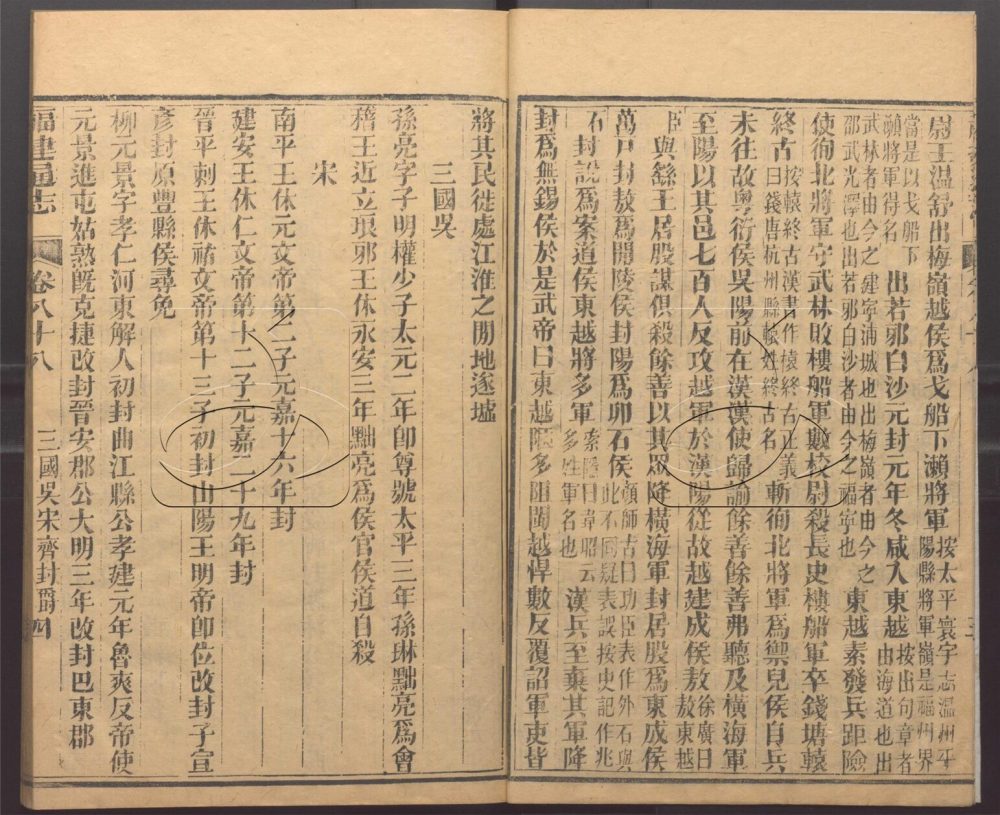 尉王温舒出梅嶺越侯爲戈船下瀨將軍按太平寰宇志温州平陽縣將軍嶺是福州界
當是以戈船下瀨將軍得名出若邪白沙元封元年冬咸入東越按出句章者由海道也出
武林者由今之建寧浦城也出梅嶺者由今之邵武光澤也出若邪白沙者由今之福寧也東越素發兵距險
使徇北將軍守武林敗樓船軍數校尉殺長史樓船軍卒錢塘轅
終古按轅終古漢書作榬終古正義曰錢唐杭州縣轅姓終古名斬徇北將軍爲禦兒侯自兵
未往故粵衍侯吳陽前在漢漢使歸諭餘善餘善弗聽及橫海軍
至陽以其邑七百人反攻越軍於漢陽從故越建成侯敖徐廣曰敖東越臣
與繇王居股謀俱殺餘善以其眾降橫海軍封居股爲東成侯
萬戶封敖爲開陵侯封陽爲卯石侯顏師古曰功臣表作外石與此不同疑表誤按史記作北石
封說爲案道侯東越將多軍索隱曰韋昭云多姓軍名也漢兵至棄其軍降
封爲無錫侯於是武帝曰東越陿多阻閩越悍數反覆詔軍吏皆
將其民徙處江淮之閒地遂墟
三國吳
孫亮字子明權少子太元二年卽尊號太平三年孫琳黜亮爲會
稽王近立琅邪王休永安三年黜亮爲侯官侯道自殺
宋
南平王休元文帝第二子元嘉十六年封
建安王休仁文帝第十二子元嘉二十九年封
晉平剌王休祐文帝第十三子初封山陽王明帝卽位改封子宣
彥封原豐縣侯尋免
柳元景字孝仁河東解人初封曲江縣公孝建元年魯爽反帝使
元景進屯姑熟旣克捷改封晉安郡公大明三年改封巴東郡
福建通志 卷八十八 三國吳宋齊封爵 四